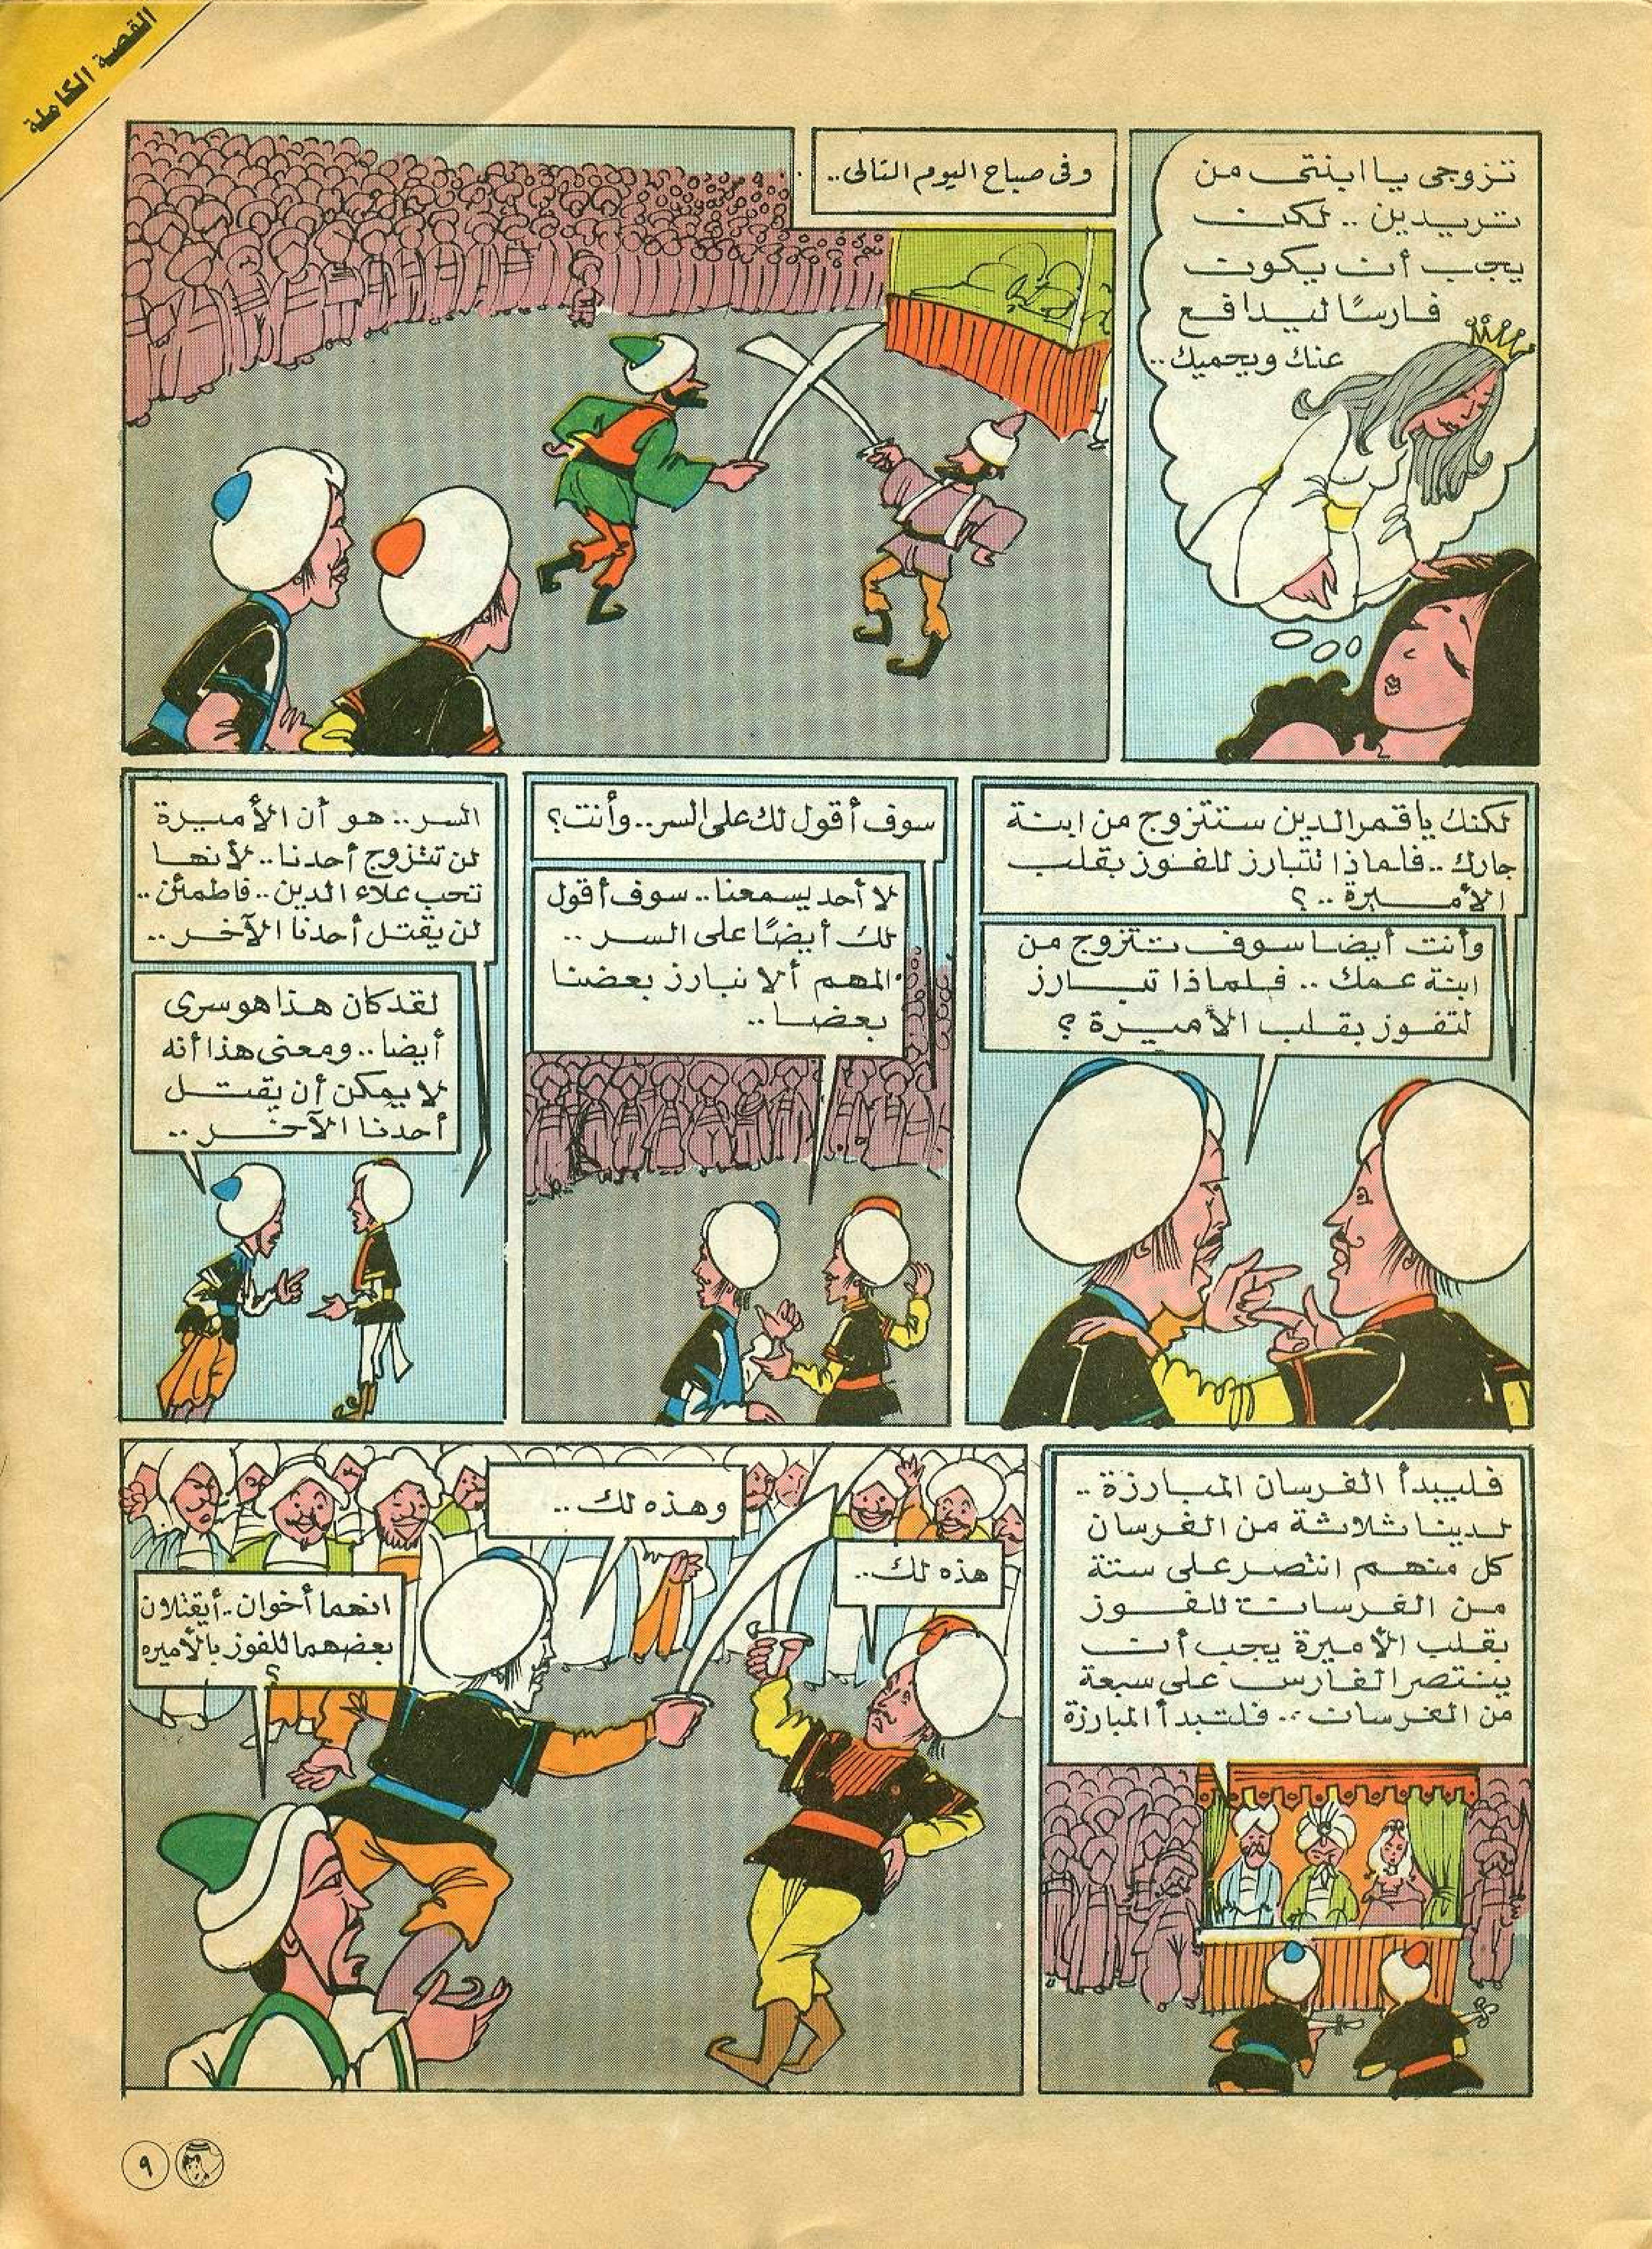 القصة الكاملة
تزوجى يا ابنتى من
تريدين .. لكن
يجب أن يكون
فارسًا ليدافع
عنك ويحميك ..
وفى صباح اليوم التالى ..
لكنك يا قمر الدين ستتزوج من ابنة
جارك .. فلماذا تتبارز للفوز بقلب
الأميرة .. ؟
وأنت أيضا سوف تتزوج من
ابنة عمك .. فلماذا تبارز
لتفوز بقلب الأميرة ؟
سوف أقول لك على السر .. وأنت ؟
لا أحد يسمعنا .. سوف أقول
لك أيضًا على السر ..
المهم ألا نبارز بعضنا
بعضا ..
السر .. هو أن الأميرة
لن تتزوج أحدنا .. لأنها
تحب علاء الدين .. فاطمئن ..
لن يقتل أحدنا الآخر ..
لقد كان هذا هو سرى
أيضا .. ومعنى هذا أنه
لا يمكن أن يقتل
أحدنا الآخر ..
فليبدأ الفرسان المبارزة ..
لدينا ثلاثة من الفرسان
كل منهم انتصر على ستة
من الفرسان للفوز
بقلب الأميرة يجب أن
ينتصر الفارس على سبعة
من الفرسان .. فلتبدأ المبارزة
هذه لك ..
وهذه لك ..
انهما أخوان .. أيقتلون
بعضهما للفوز بالأميره
؟
٩